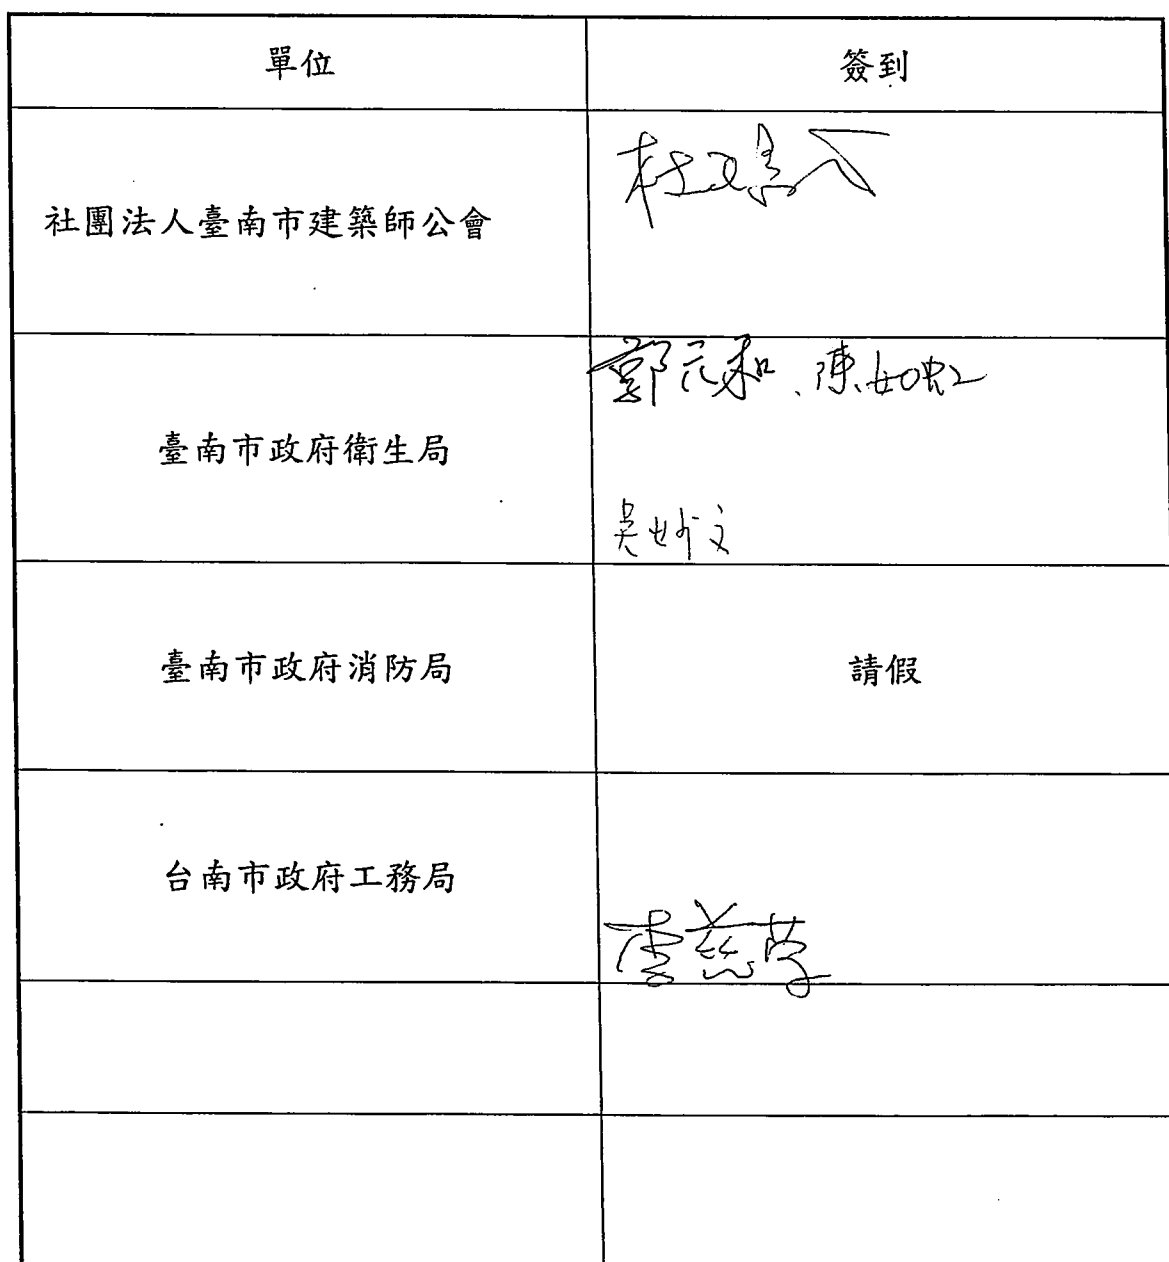 單位
簽到
社團法人臺南市建築師公會
臺南市政府衛生局
鄭元和、陳如虹
吳妙文
臺南市政府消防局
請假
台南市政府工務局